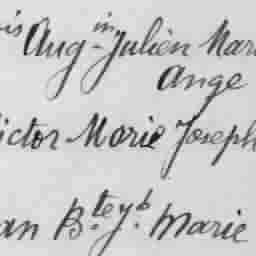 is Aug-in Julien Mari
Ange
ictor Marie Joseph
an B.te y.b Marie